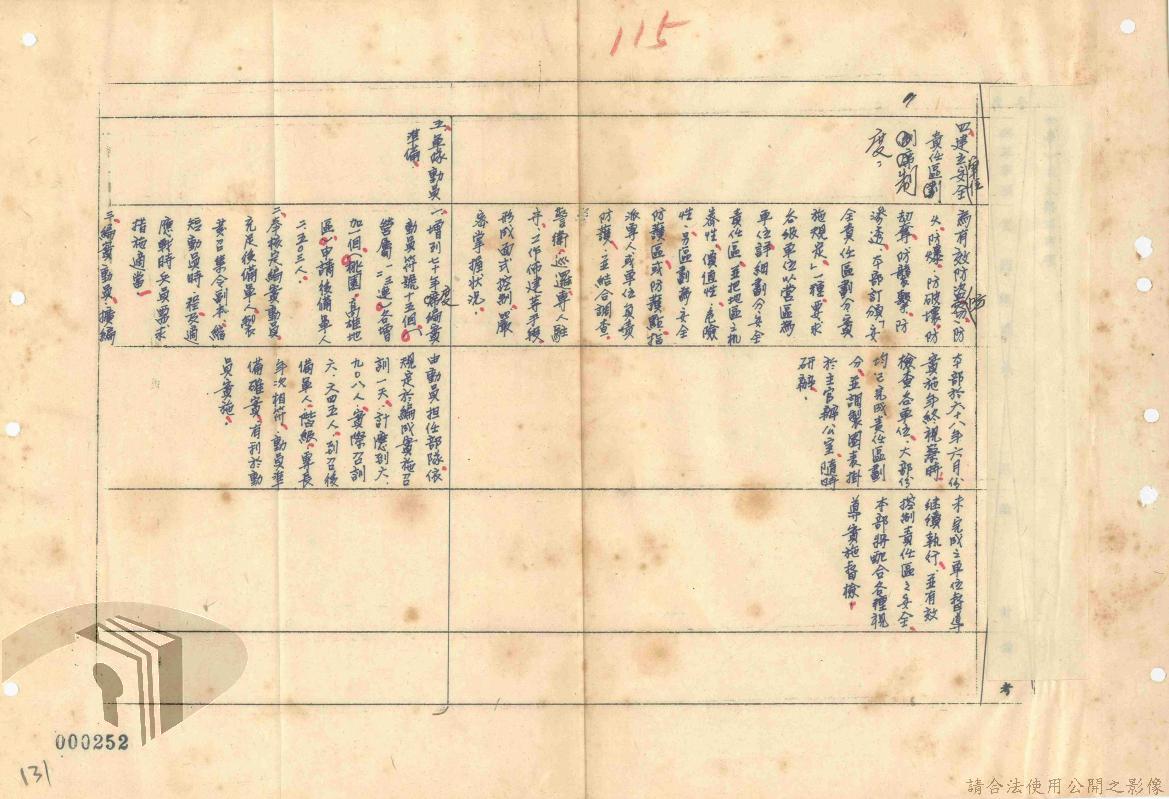 115
四、建立安全
單位
責任區劃
制席制
度：
為有效防盜竊、防
火、防爆、防破壞、防
劫奪、防襲擊、防
滲透、本部訂頒「安
全責任區劃分實
施規定」一種、要求
各級單位以營區為
單位詳細劃分安全
責任區、並把地區之機
密性、價值性、危險
性、分區劃為安全
防護區或防護點、指
派專人或單位負責
防護、並結合調查、
警衛、巡邏、專人駐
守、工作佈建等手段
形成面式控制、嚴
密掌握狀況。
本部於六十八年六月份
實施年終視察時、
檢查各單位、大部份
均已完成責任區劃
分、並調製圖表掛
於主官辦公室、隨時
研辦。
未完成之單位督導
繼續執行、並有效
控制責任區之安全、
本部將配合各種視
導實施督檢。
五、軍隊動員
準備、
一、增列七十年度
動員符號十五個(
營屬二、三連)各增
加一個(桃園、高雄地
區)、申請後備軍人
二、五〇三人。
二、奉核定編實動員
充足後備軍人(製
業召集令副本、縮
短動員時程)、適
應戰時兵員需求
措施適當。
三、編實動員、擴編
由動員担任部隊、依
規定於編成實施召
訓一天、計應到六、
九〇八人、實際召訓
六、又四五人、到召後
備軍人、階級、專長
年次相符、動員準
備確實、有利於動
員實施。
考
000252
131
請合法使用公開之影像